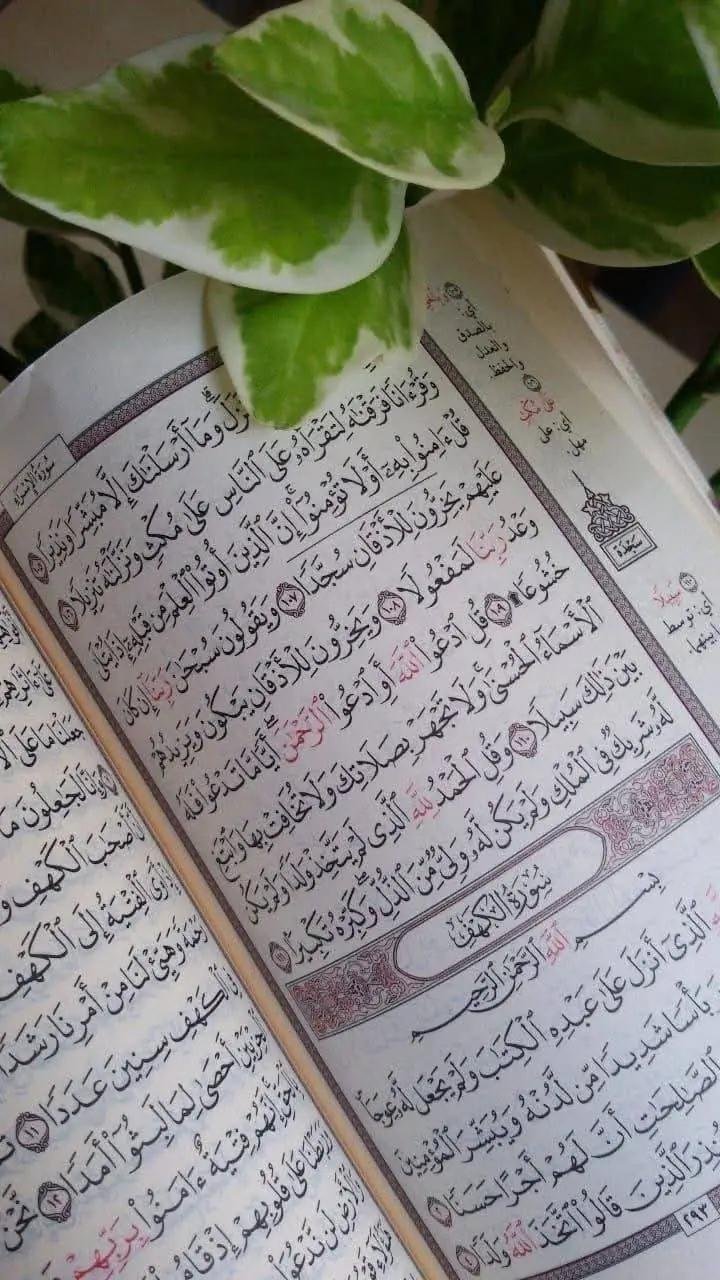 سُورَةُ الإِسْرَاءِ
نَزَلَ ۗ وَمَآ أَرْسَلْنَٰكَ إِلَّا مُبَشِّرًا وَنَذِيرًا ١٠٥
وَقُرْءَانًا فَرَقْنَٰهُ لِتَقْرَأَهُۥ عَلَى ٱلنَّاسِ عَلَىٰ مُكْثٍ وَنَزَّلْنَٰهُ تَنزِيلًا ١٠٦
قُلْ ءَامِنُوا۟ بِهِۦٓ أَوْ لَا تُؤْمِنُوٓا۟ ۚ إِنَّ ٱلَّذِينَ أُوتُوا۟ ٱلْعِلْمَ مِن قَبْلِهِۦٓ إِذَا يُتْلَىٰ
عَلَيْهِمْ يَخِرُّونَ لِلْأَذْقَانِ سُجَّدًا ١٠٧ وَيَقُولُونَ سُبْحَٰنَ رَبِّنَآ إِن كَانَ
وَعْدُ رَبِّنَا لَمَفْعُولًا ١٠٨ وَيَخِرُّونَ لِلْأَذْقَانِ يَبْكُونَ وَيَزِيدُهُمْ
خُشُوعًا ۩ ١٠٩ قُلِ ٱدْعُوا۟ ٱللَّهَ أَوِ ٱدْعُوا۟ ٱلرَّحْمَٰنَ ۖ أَيًّا مَّا تَدْعُوا۟ فَلَهُ
ٱلْأَسْمَآءُ ٱلْحُسْنَىٰ ۚ وَلَا تَجْهَرْ بِصَلَاتِكَ وَلَا تُخَافِتْ بِهَا وَٱبْتَغِ
بَيْنَ ذَٰلِكَ سَبِيلًا ١١٠ وَقُلِ ٱلْحَمْدُ لِلَّهِ ٱلَّذِى لَمْ يَتَّخِذْ وَلَدًا وَلَمْ يَكُن
لَّهُۥ شَرِيكٌ فِى ٱلْمُلْكِ وَلَمْ يَكُن لَّهُۥ وَلِىٌّ مِّنَ ٱلذُّلِّ ۖ وَكَبِّرْهُ تَكْبِيرًۢا ١١١
سُورَةُ الكَهْفِ
بِسْمِ ٱللَّهِ ٱلرَّحْمَٰنِ ٱلرَّحِيمِ
ٱلَّذِىٓ أَنزَلَ عَلَىٰ عَبْدِهِ ٱلْكِتَٰبَ وَلَمْ يَجْعَل لَّهُۥ عِوَجَا
بَأْسًا شَدِيدًا مِّن لَّدُنْهُ وَيُبَشِّرَ ٱلْمُؤْمِنِينَ
ٱلصَّٰلِحَٰتِ أَنَّ لَهُمْ أَجْرًا حَسَنًا ٢
ٱلَّذِينَ قَالُوا۟ ٱتَّخَذَ ٱللَّهُ وَلَدًا ٤
٢٩٣
أي:
بالصدق
والعدل
والحفظ.
عَلَىٰ مُكْثٍ
أي: على
مهل.
سَجْدَة
سَبِيلًا
أي: توسط
بينهما.
جَعَلْنَا مَا عَلَى
وَإِنَّا لَجَٰعِلُونَ مَا
أَصْحَٰبَ ٱلْكَهْفِ
أَوَى ٱلْفِتْيَةُ إِلَى ٱلْكَهْفِ
رَحْمَةً وَهَيِّئْ لَنَا مِنْ أَمْرِنَا رَشَدًا
ٱلْكَهْفِ سِنِينَ عَدَدًا ١١
أَحْصَىٰ لِمَا لَبِثُوٓا۟ أَمَدًا ١٢ نَّحْنُ
إِنَّهُمْ فِتْيَةٌ ءَامَنُوا۟ بِرَبِّهِمْ
عَلَىٰ قُلُوبِهِمْ إِذْ قَامُوا۟
وَٱلْأَرْضِ لَن نَّدْعُوَا۟